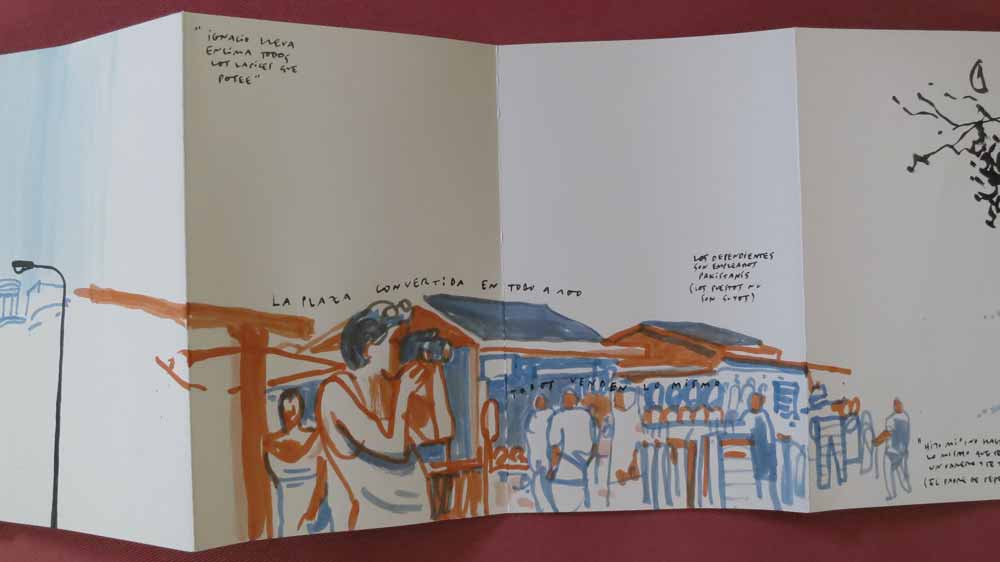 "IGNACIO LLEVA
ENCIMA TODOS
LOS LAPICES QUE
POSEE"
LA PLAZA CONVERTIDA EN TODO A 100
LOS DEPENDIENTES
SON EMPLEADOS
PAKISTANIS
(LOS PUESTOS NO
SON SUYOS)
TODOS VENDEN LO MISMO
"HIJO MIO, NO
LO MISMO QUE
UN
(EL PADRE DE